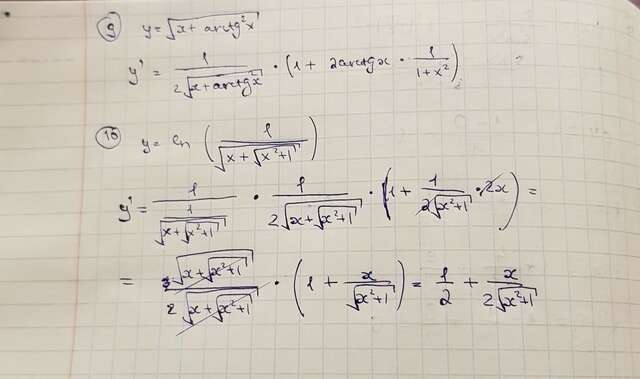 9 y = √(x + arctg²x)
y' = 1/(2√(x + arctg²x)) · (1 + 2arctgx · 1/(1+x²))
10 y = ln (1/√(x + √(x²+1)))
y' = 1/(1/√(x + √(x²+1))) · 1/(2√(x + √(x²+1))) · (1 + 1/(2√(x²+1)) · 2x) =
= √(x + √(x²+1))/(2√(x + √(x²+1))) · (1 + x/√(x²+1)) = 1/2 + x/(2√(x²+1))